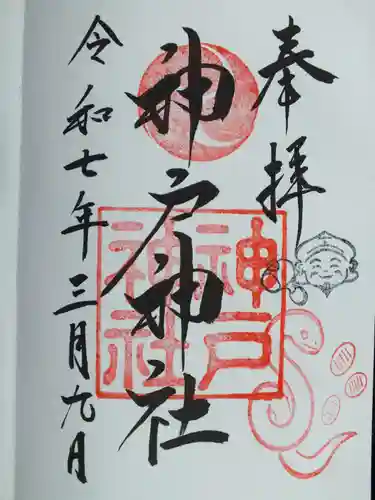 奉拝
神戸神社
令和七年三月九日
神戸
神社